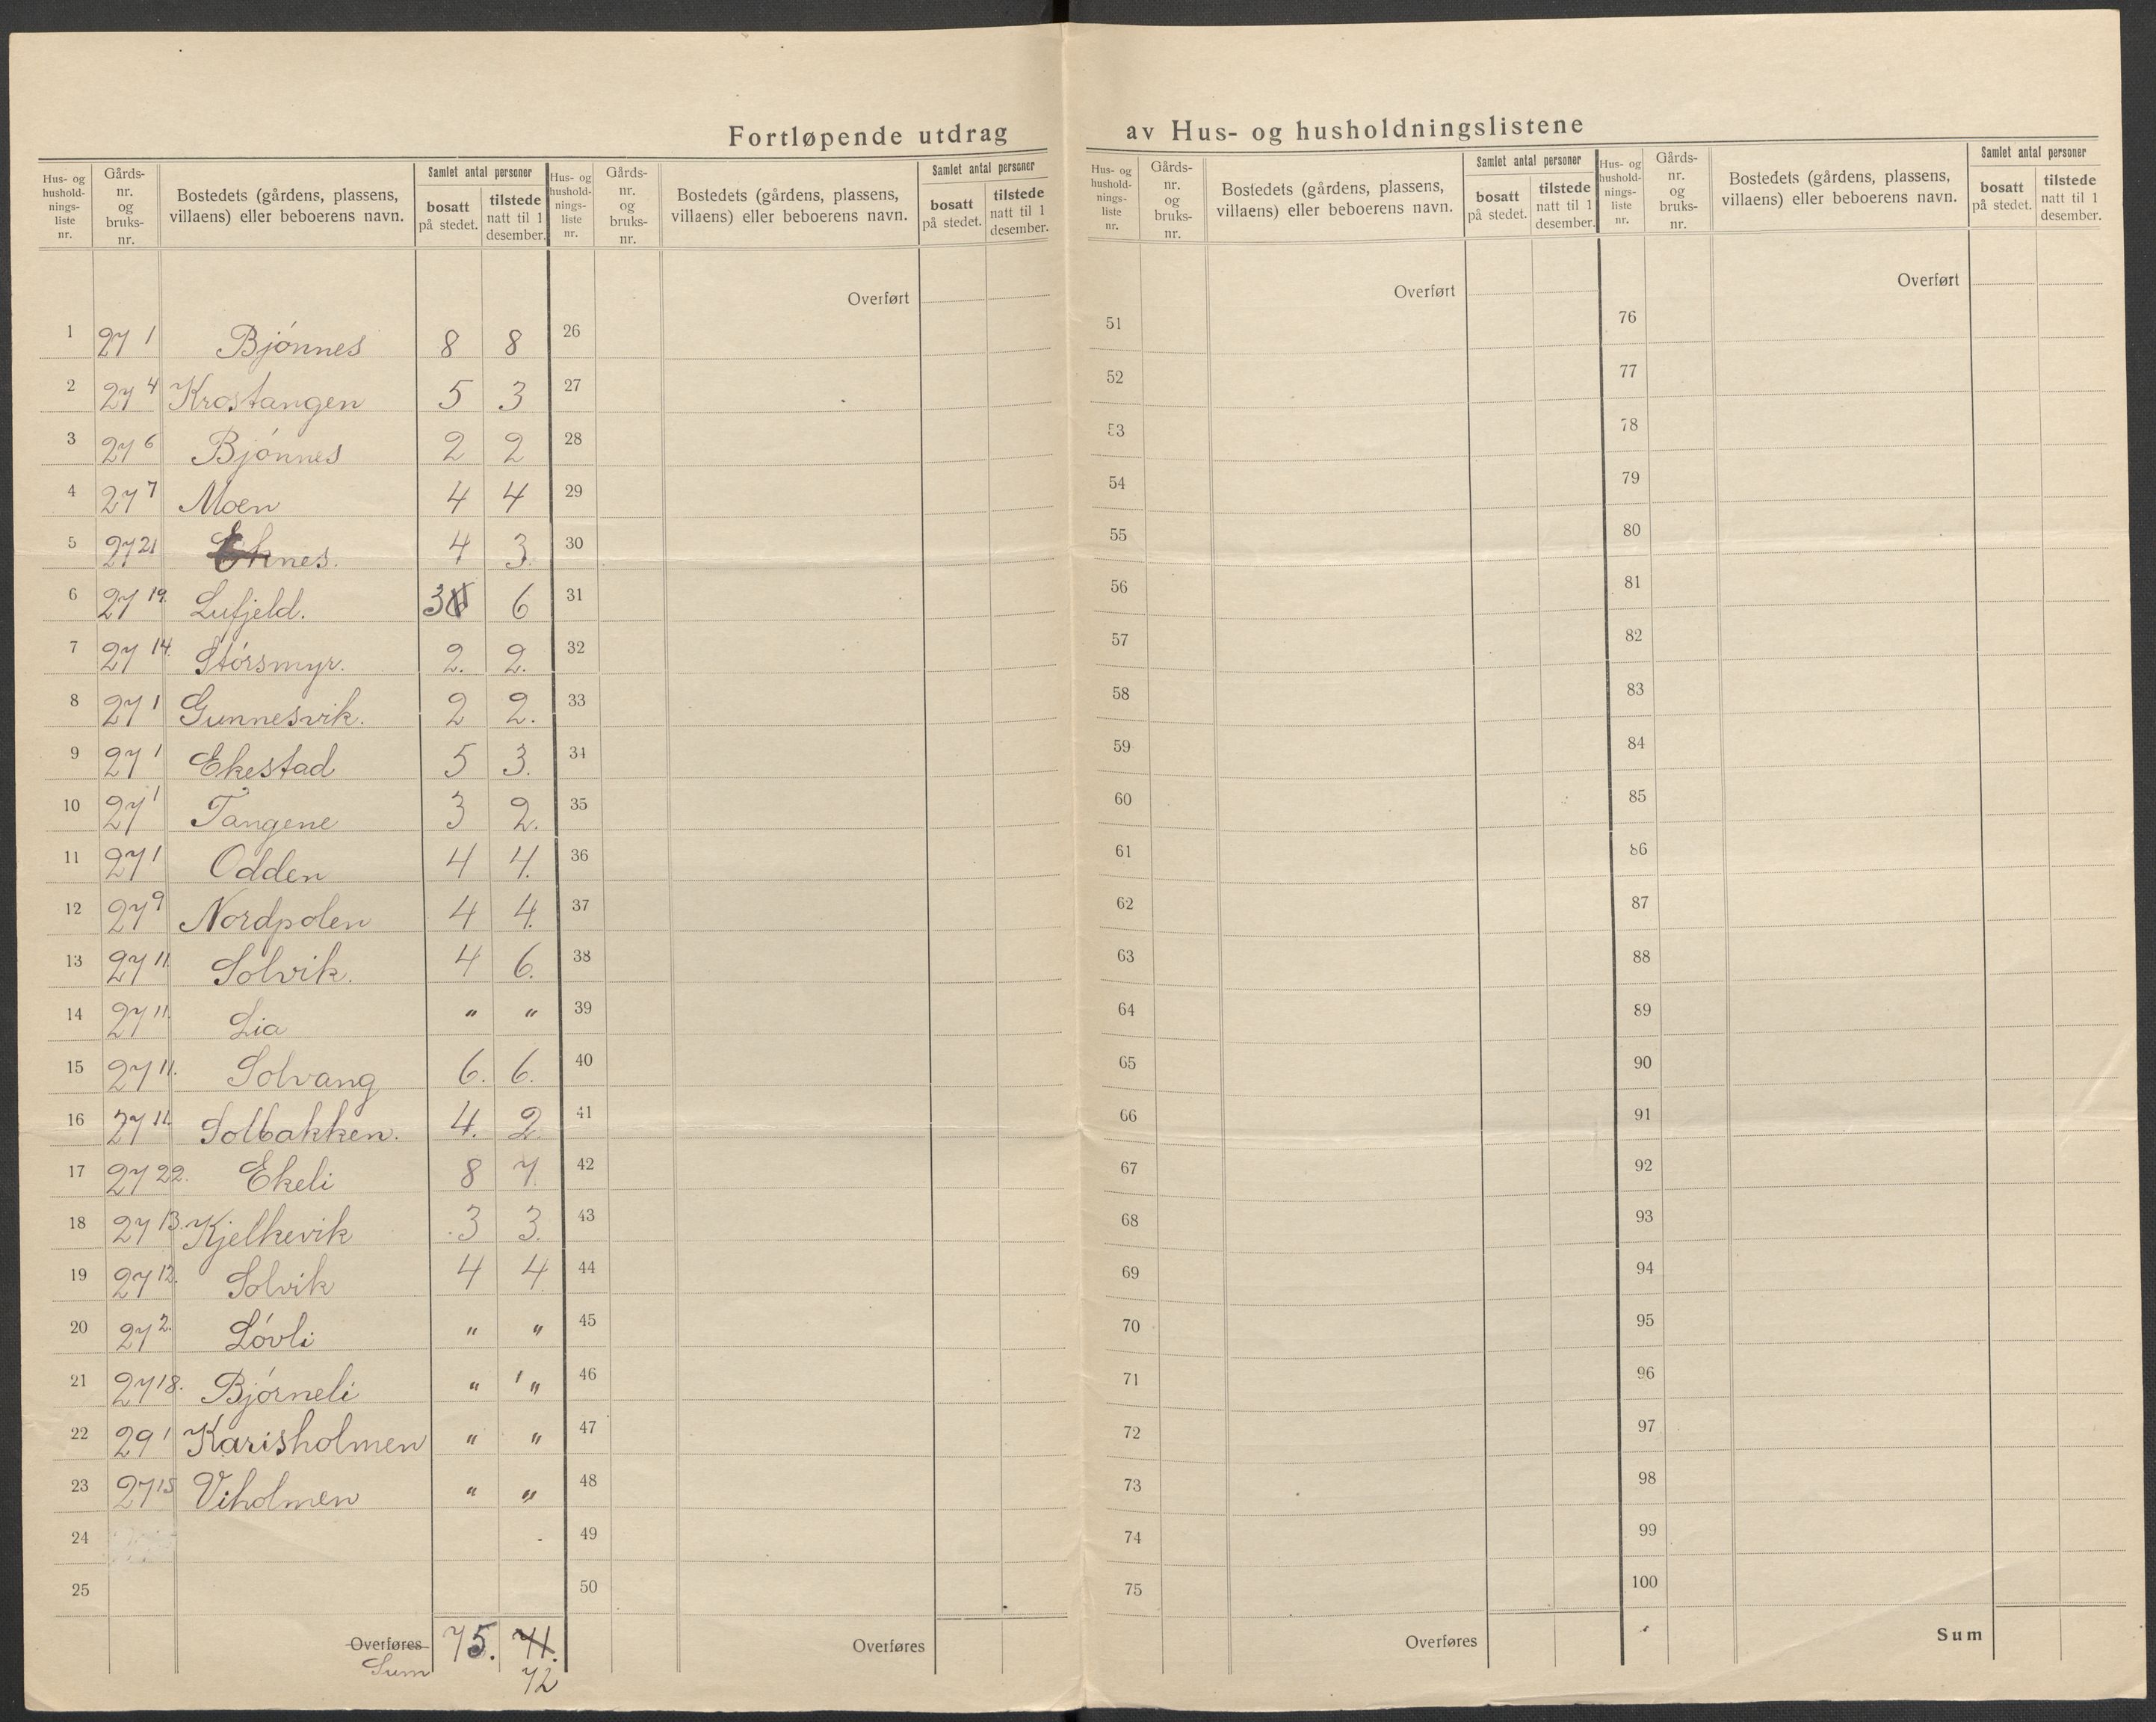 Fortløpende utdrag av Hus- og husholdningslistene
Hus- og hushold- nings- liste nr. | Gårds- nr. og bruks- nr. | Bostedets (gårdens, plassens, villaens) eller beboerens navn. | Samlet antal personer | bosatt på stedet. | tilstede natt til 1 desember.
1 27 1 Bjónnes 8 8
2 27 4 Krostangen 5 3
3 27 6 Bjónnes 2 2
4 27 7 Moen 4 4
5 27 21 nes. 4 3.
6 27 19. Lufjeld. 3 6
7 27 14. Stórsmyr. 2. 2.
8 27 1 Gunnesvik. 2 2.
9 27 1 Ekestad 5 3.
10 27 1 Tangene 3 2.
11 27 1 Odden 4 4.
12 27 9 Nordpolen 4 4.
13 27 11. Solvik. 4 6.
14 27 11. Lia " "
15 27 11. Solvang 6. 6.
16 27 11. Solbakken. 4. 2.
17 27 22. Ekeli 8 7.
18 27 13. Kjelkevik 3 3.
19 27 12. Solvik 4 4
20 27 2. Lóvli " "
21 27 18. Bjórneli " "
22 29 1 Karisholmen " "
23 27 15 Viholmen " "
24
25
Overføres 75. 71.
Sum 72
Hus- og hushold- nings- liste nr. | Gårds- nr. og bruks- nr. | Bostedets (gårdens, plassens, villaens) eller beboerens navn. | Samlet antal personer | bosatt på stedet. | tilstede natt til 1 desember.
Overført
26
27
28
29
30
31
32
33
34
35
36
37
38
39
40
41
42
43
44
45
46
47
48
49
50
Overføres
Hus- og hushold- nings- liste nr. | Gårds- nr. og bruks- nr. | Bostedets (gårdens, plassens, villaens) eller beboerens navn. | Samlet antal personer | bosatt på stedet. | tilstede natt til 1 desember.
Overført
51
52
53
54
55
56
57
58
59
60
61
62
63
64
65
66
67
68
69
70
71
72
73
74
75
Overføres
Hus- og hushold- nings- liste nr. | Gårds- nr. og bruks- nr. | Bostedets (gårdens, plassens, villaens) eller beboerens navn. | Samlet antal personer | bosatt på stedet. | tilstede natt til 1 desember.
Overført
76
77
78
79
80
81
82
83
84
85
86
87
88
89
90
91
92
93
94
95
96
97
98
99
100
Sum